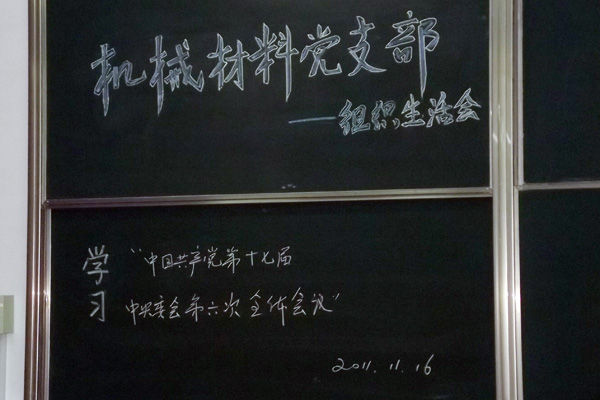 机械材料党支部
——组织生活会
学习
“中国共产党第十七届
中央委会第六次全体会议”
2011.11.16